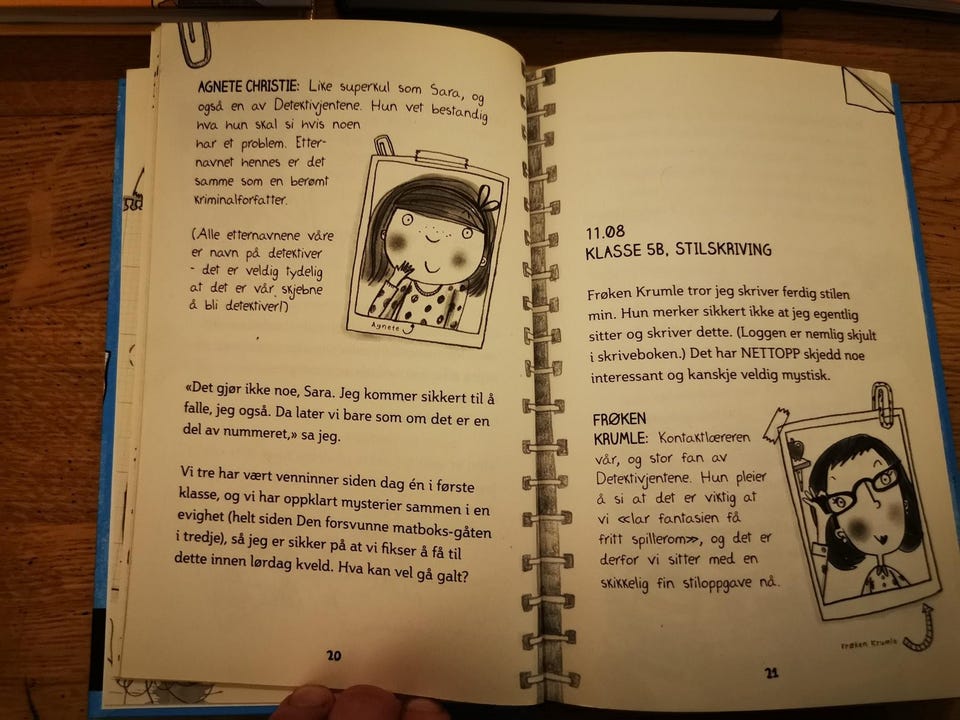 AGNETE CHRISTIE: Like superkul som Sara, og
også en av Detektivjentene. Hun vet bestandig
hva hun skal si hvis noen
har et problem. Etter-
navnet hennes er det
samme som en berømt
kriminalforfatter.
(Alle etternavnene våre
er navn på detektiver
- det er veldig tydelig
at det er vår skjebne
å bli detektiver!)
Agnete
«Det gjør ikke noe, Sara. Jeg kommer sikkert til å
falle, jeg også. Da later vi bare som om det er en
del av nummeret,» sa jeg.
Vi tre har vært venninner siden dag én i første
klasse, og vi har oppklart mysterier sammen i en
evighet (helt siden Den forsvunne matboks-gåten
i tredje), så jeg er sikker på at vi fikser å få til
dette innen lørdag kveld. Hva kan vel gå galt?
20
11.08
KLASSE 5B, STILSKRIVING
Frøken Krumle tror jeg skriver ferdig stilen
min. Hun merker sikkert ikke at jeg egentlig
sitter og skriver dette. (Loggen er nemlig skjult
i skriveboken.) Det har NETTOPP skjedd noe
interessant og kanskje veldig mystisk.
FRØKEN
KRUMLE: Kontaktlæreren
vår, og stor fan av
Detektivjentene. Hun pleier
å si at det er viktig at
vi «lar fantasien få
fritt spillerom», og det er
derfor vi sitter med en
skikkelig fin stiloppgave nå.
Frøken Krumle
21